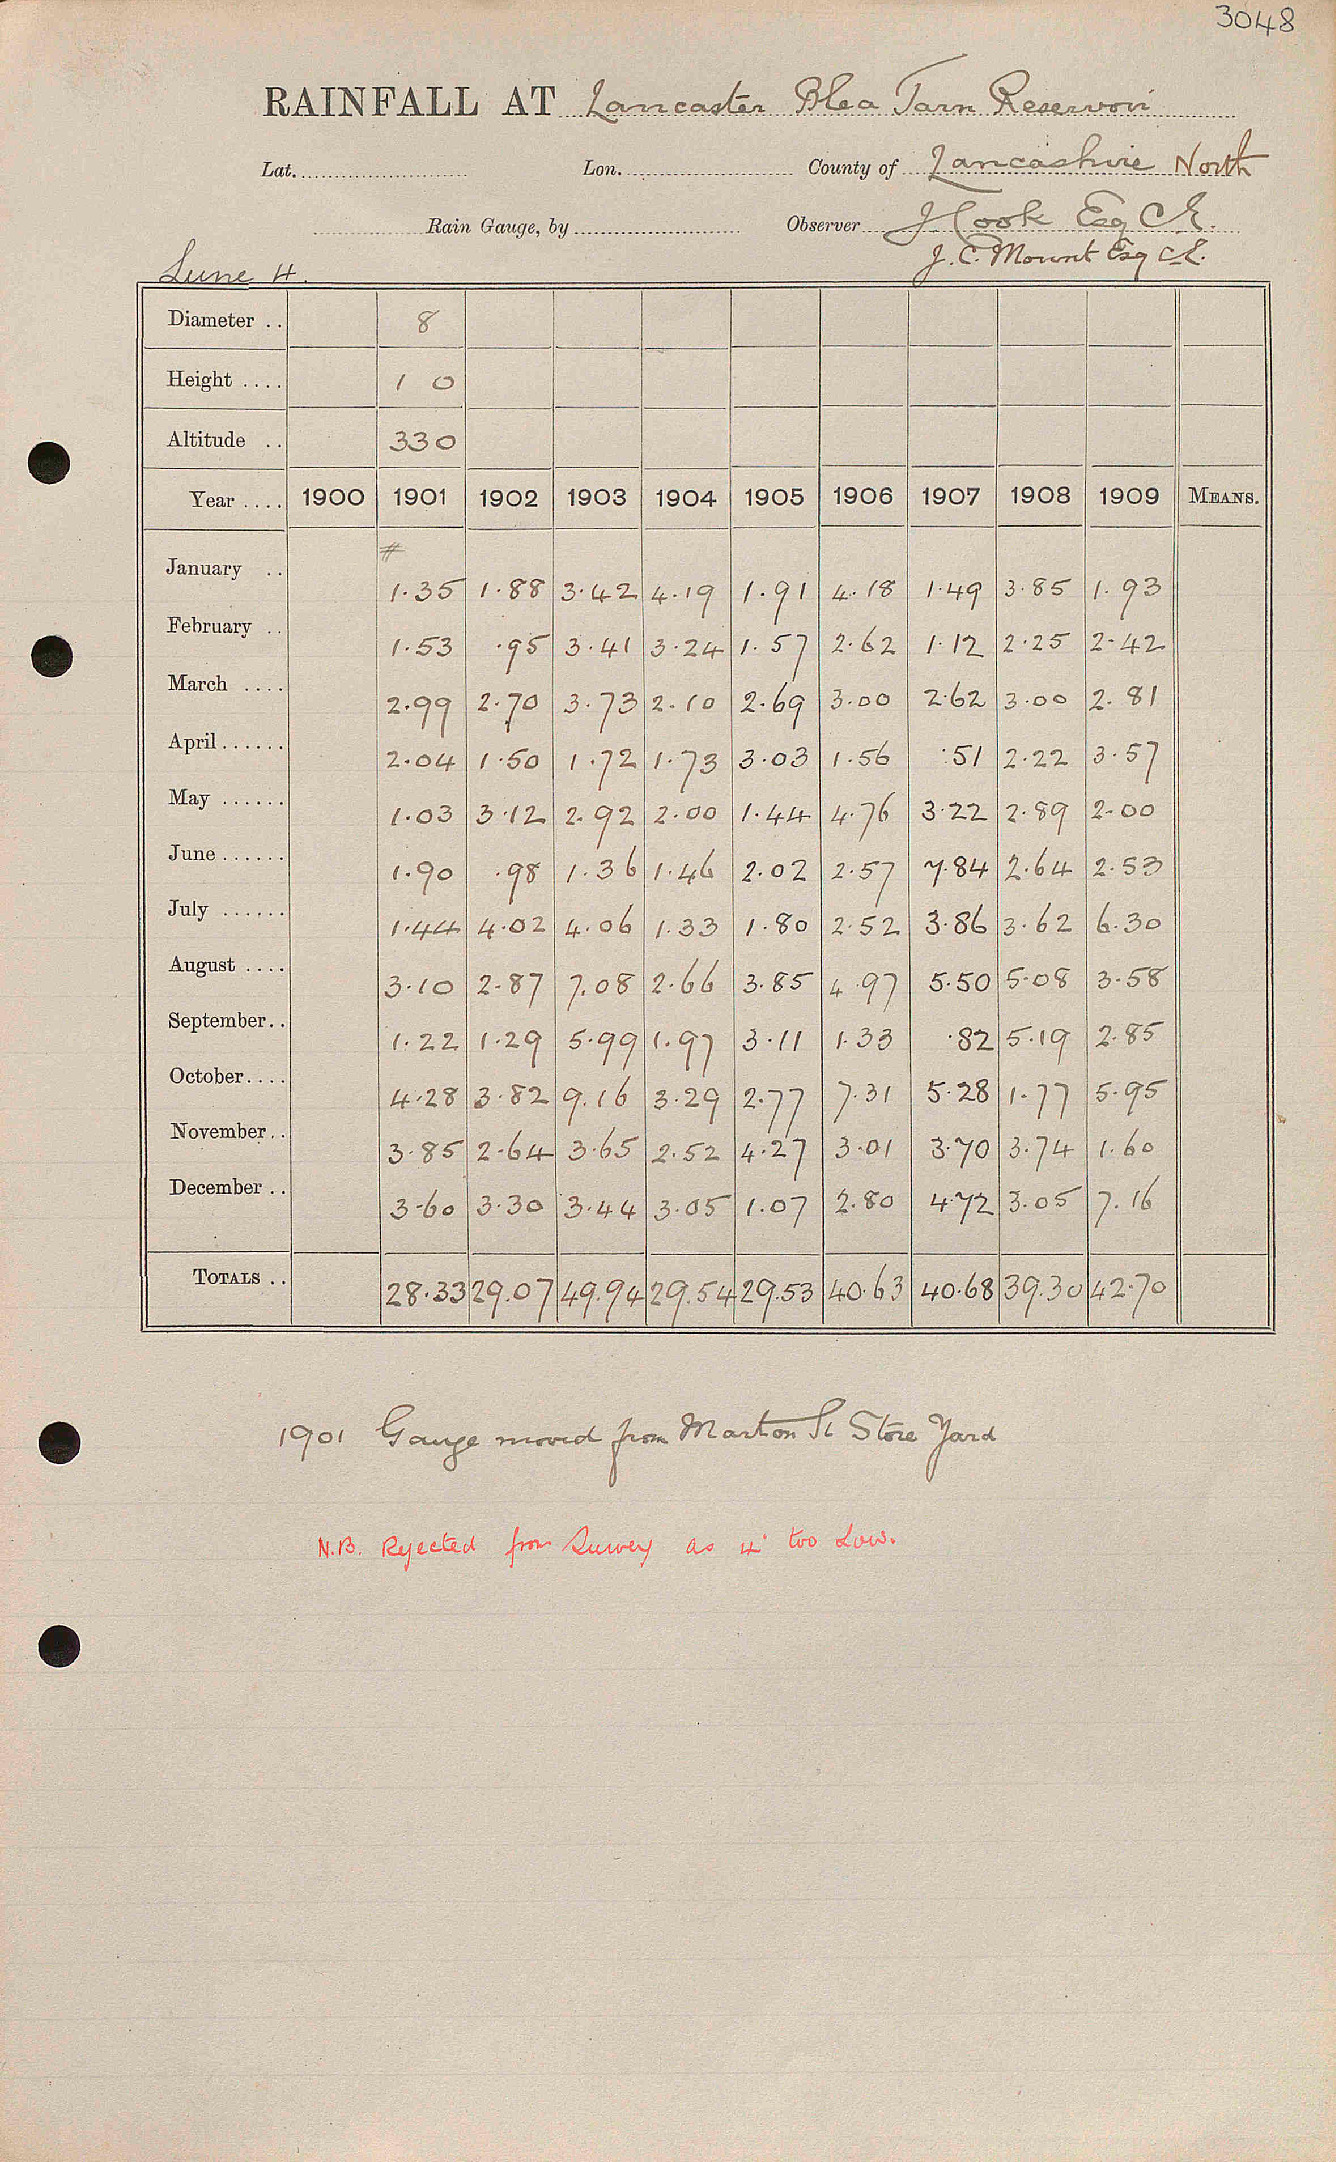 3048
RAINFALL AT Lancaster Blea Tarn Reservoir
Lat. Lon. County of Lancashire North
Rain Gauge, by Observer J Cook Esq C.E.
Lune 4. J. C. Mount Esq C.E.
Diameter .. 8
Height .... 1 0
Altitude .. 330
Year .... 1900 1901 1902 1903 1904 1905 1906 1907 1908 1909 MEANS.
#
January .. 1.35 1.88 3.42 4.19 1.91 4.18 1.49 3.85 1.93
February .. 1.53 .95 3.41 3.24 1.57 2.62 1.12 2.25 2.42
March .... 2.99 2.70 3.73 2.10 2.69 3.00 2.62 3.00 2.81
April ...... 2.04 1.50 1.72 1.73 3.03 1.56 .51 2.22 3.57
May ...... 1.03 3.12 2.92 2.00 1.44 4.76 3.22 2.89 2.00
June ...... 1.90 .98 1.36 1.46 2.02 2.57 7.84 2.64 2.53
July ...... 1.44 4.02 4.06 1.33 1.80 2.52 3.86 3.62 6.30
August .... 3.10 2.87 7.08 2.66 3.85 4.97 5.50 5.08 3.58
September.. 1.22 1.29 5.99 1.97 3.11 1.33 .82 5.19 2.85
October.... 4.28 3.82 9.16 3.29 2.77 7.31 5.28 1.77 5.95
November.. 3.85 2.64 3.65 2.52 4.27 3.01 3.70 3.74 1.60
December .. 3.60 3.30 3.44 3.05 1.07 2.80 4.72 3.05 7.16
TOTALS .. 28.33 29.07 49.94 29.54 29.53 40.63 40.68 39.30 42.70
1901 Gauge moved from Marton St Store Yard
N.B. Rejected from Survey as 4" too Low.